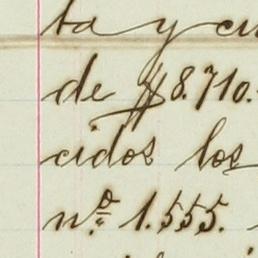 ta y
de $8.710.
cidos los
nº 1.555.